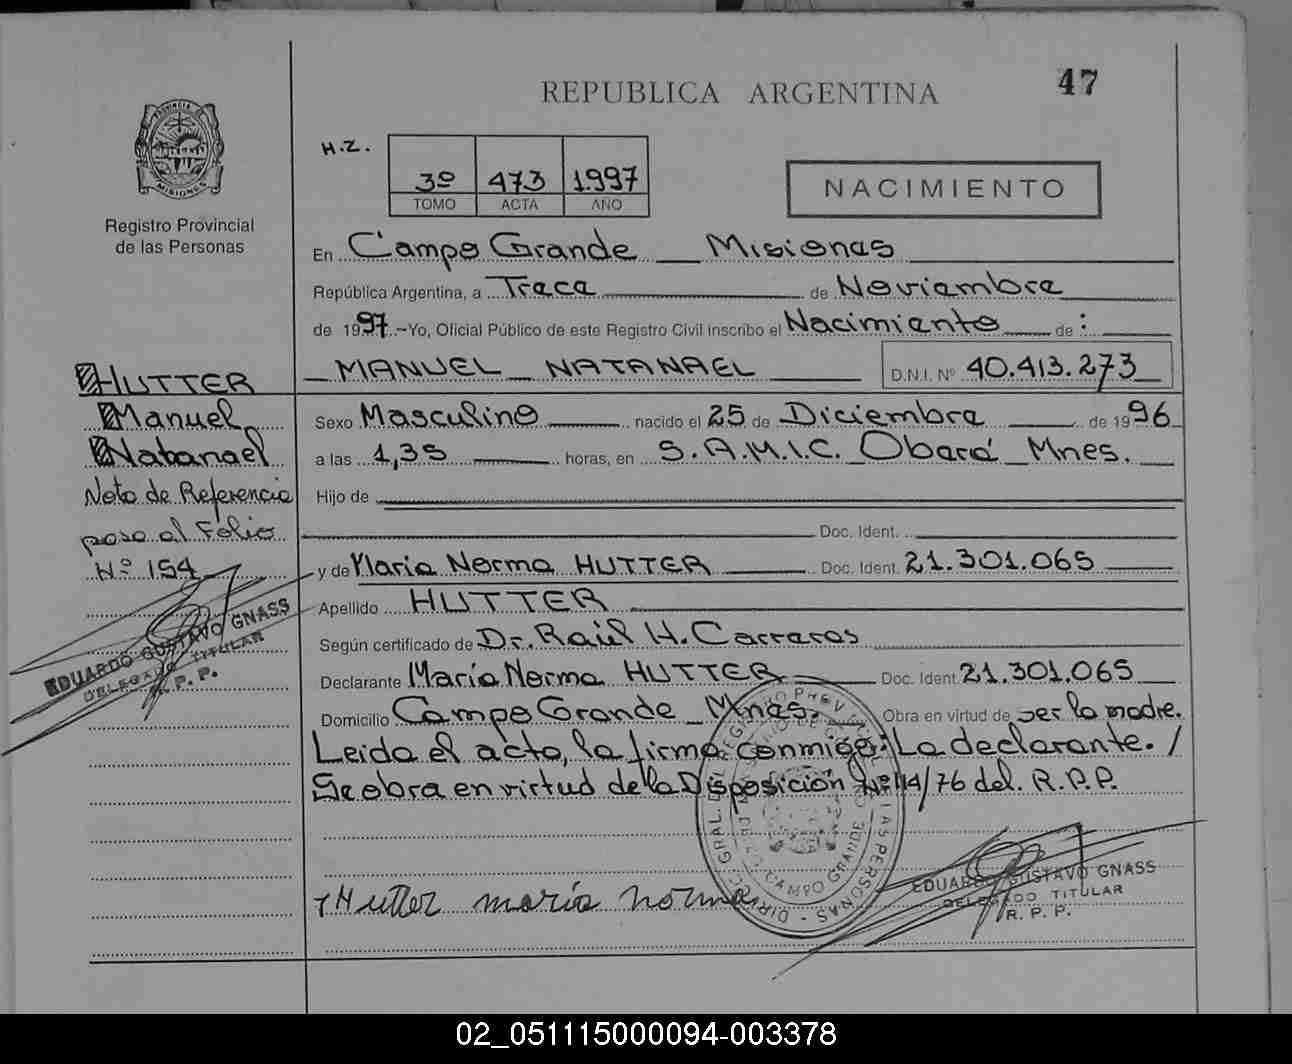 REPUBLICA ARGENTINA
47
PROVINCIA DE
MISIONES
Registro Provincial
de las Personas
H.Z.
3º 473 1.997
TOMO ACTA AÑO
NACIMIENTO
En Campo Grande Misiones
República Argentina, a Trece de Noviembre
de 1997.-Yo, Oficial Público de este Registro Civil inscribo el Nacimiento de:
HUTTER MANUEL NATANAEL D.N.I. Nº 40.413.273
Manuel Sexo Masculino nacido el 25 de Diciembre de 1996
Natanael a las 1,35 horas, en S.A.M.I.C. Oberá Mnes.
Nota de Referencia Hijo de
pasa al Folio Doc. Ident.
Nº 154 y de Maria Norma HUTTER Doc. Ident. 21.301.065
Apellido HUTTER
EDUARDO GUSTAVO GNASS
DELEGADO TITULAR
R.P.P.
Según certificado de Dr. Raúl H. Carreras
Declarante María Norma HUTTER Doc. Ident. 21.301.065
Domicilio Campo Grande Mnes. Obra en virtud de ser la madre.
Leida el acta, la firma conmigo: La declarante. /
Se obra en virtud de la Disposición Nº 114/76 del. R.P.P.
Hutter maría norma
CAMPO GRANDE
EDUARDO GUSTAVO GNASS
DELEGADO TITULAR
R. P. P.
02_051115000094-003378